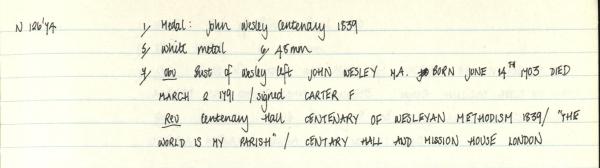 N 126'74 1/ Medal: John Wesley Centenary 1839
5/ White metal 6/ 48mm
7/ obv Bust of Wesley left JOHN WESLEY M.A. BORN JUNE 14TH 1703 DIED
MARCH 2 1791 / signed CARTER F
Rev Centenary Hall CENTENARY OF WESLEYAN METHODISM 1839/ "THE
WORLD IS MY PARISH" / CENTARY HALL AND MISSION HOUSE LONDON